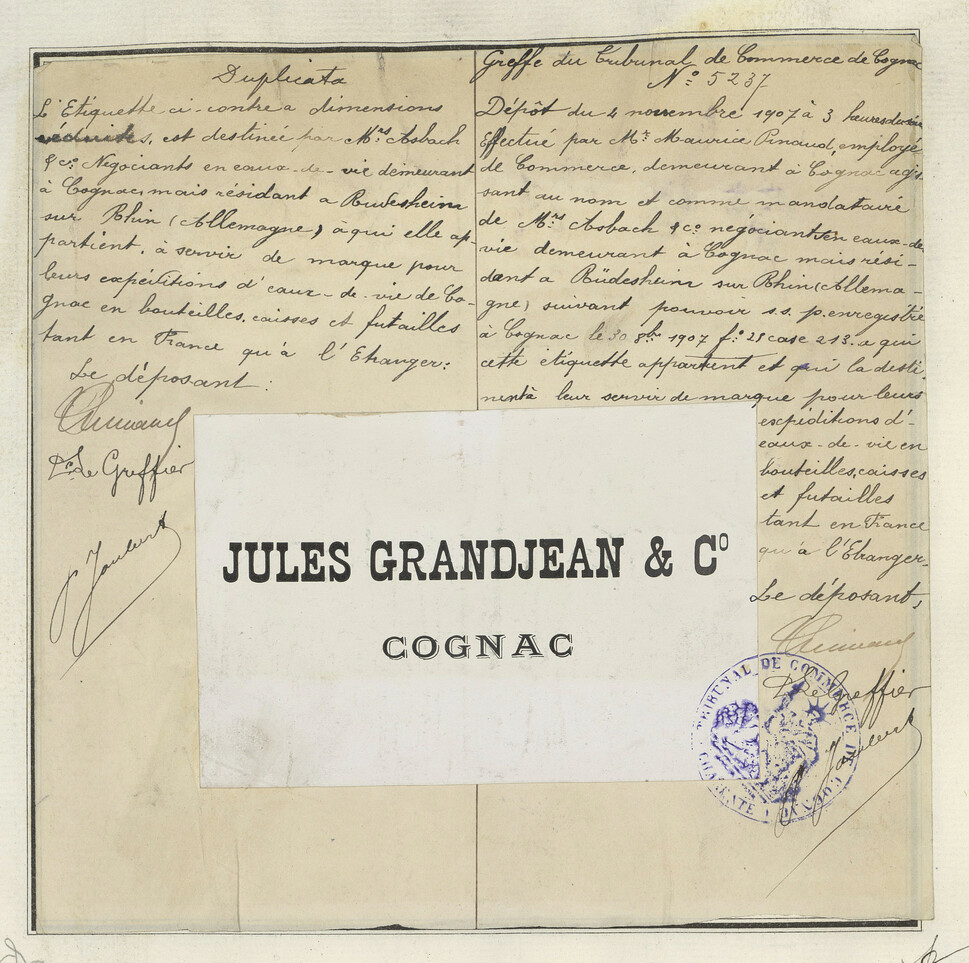 Duplicata
L'Etiquette ci-contre a dimensions
réduites, est destinée par Mrs Asbach
& Co. Négociants en eaux-de-vie demeurant
à Cognac, mais résidant a Rüdesheim
sur Rhin (Allemagne) à qui elle ap-
partient, à servir de marque pour
leurs expéditions d'eaux-de-vie de Co-
gnac en bouteilles, caisses et futailles
tant en France qu'à l'Etranger:
Le déposant:
P. Le Greffier
Greffe du Tribunal de Commerce de Cognac
No 5237
Dépôt du 4 novembre 1907 à 3 heures du soir
Effectué par Mr Maurice Pinaud, employé
de Commerce, demeurant à Cognac agis
sant au nom et comme mandataire
de Mrs Asbach & Co négociants en eaux-de-
vie demeurant à Cognac mais rési-
dant a Rüdesheim sur Rhin (Allema-
gne) suivant pouvoir s.s.p. enregistré
à Cognac le 30 8bre 1907 fo 25 case 213. a qui
cette étiquette appartient et qui la desti-
nent à leur servir de marque pour leurs
expéditions d'
eaux-de-vie en
bouteilles, caisses
et futailles
tant en France
qu'à l'Etranger.
Le déposant,
P. Le Greffier
JULES GRANDJEAN & Co
COGNAC
TRIBUNAL DE COMMERCE DE COGNAC
CHARENTE